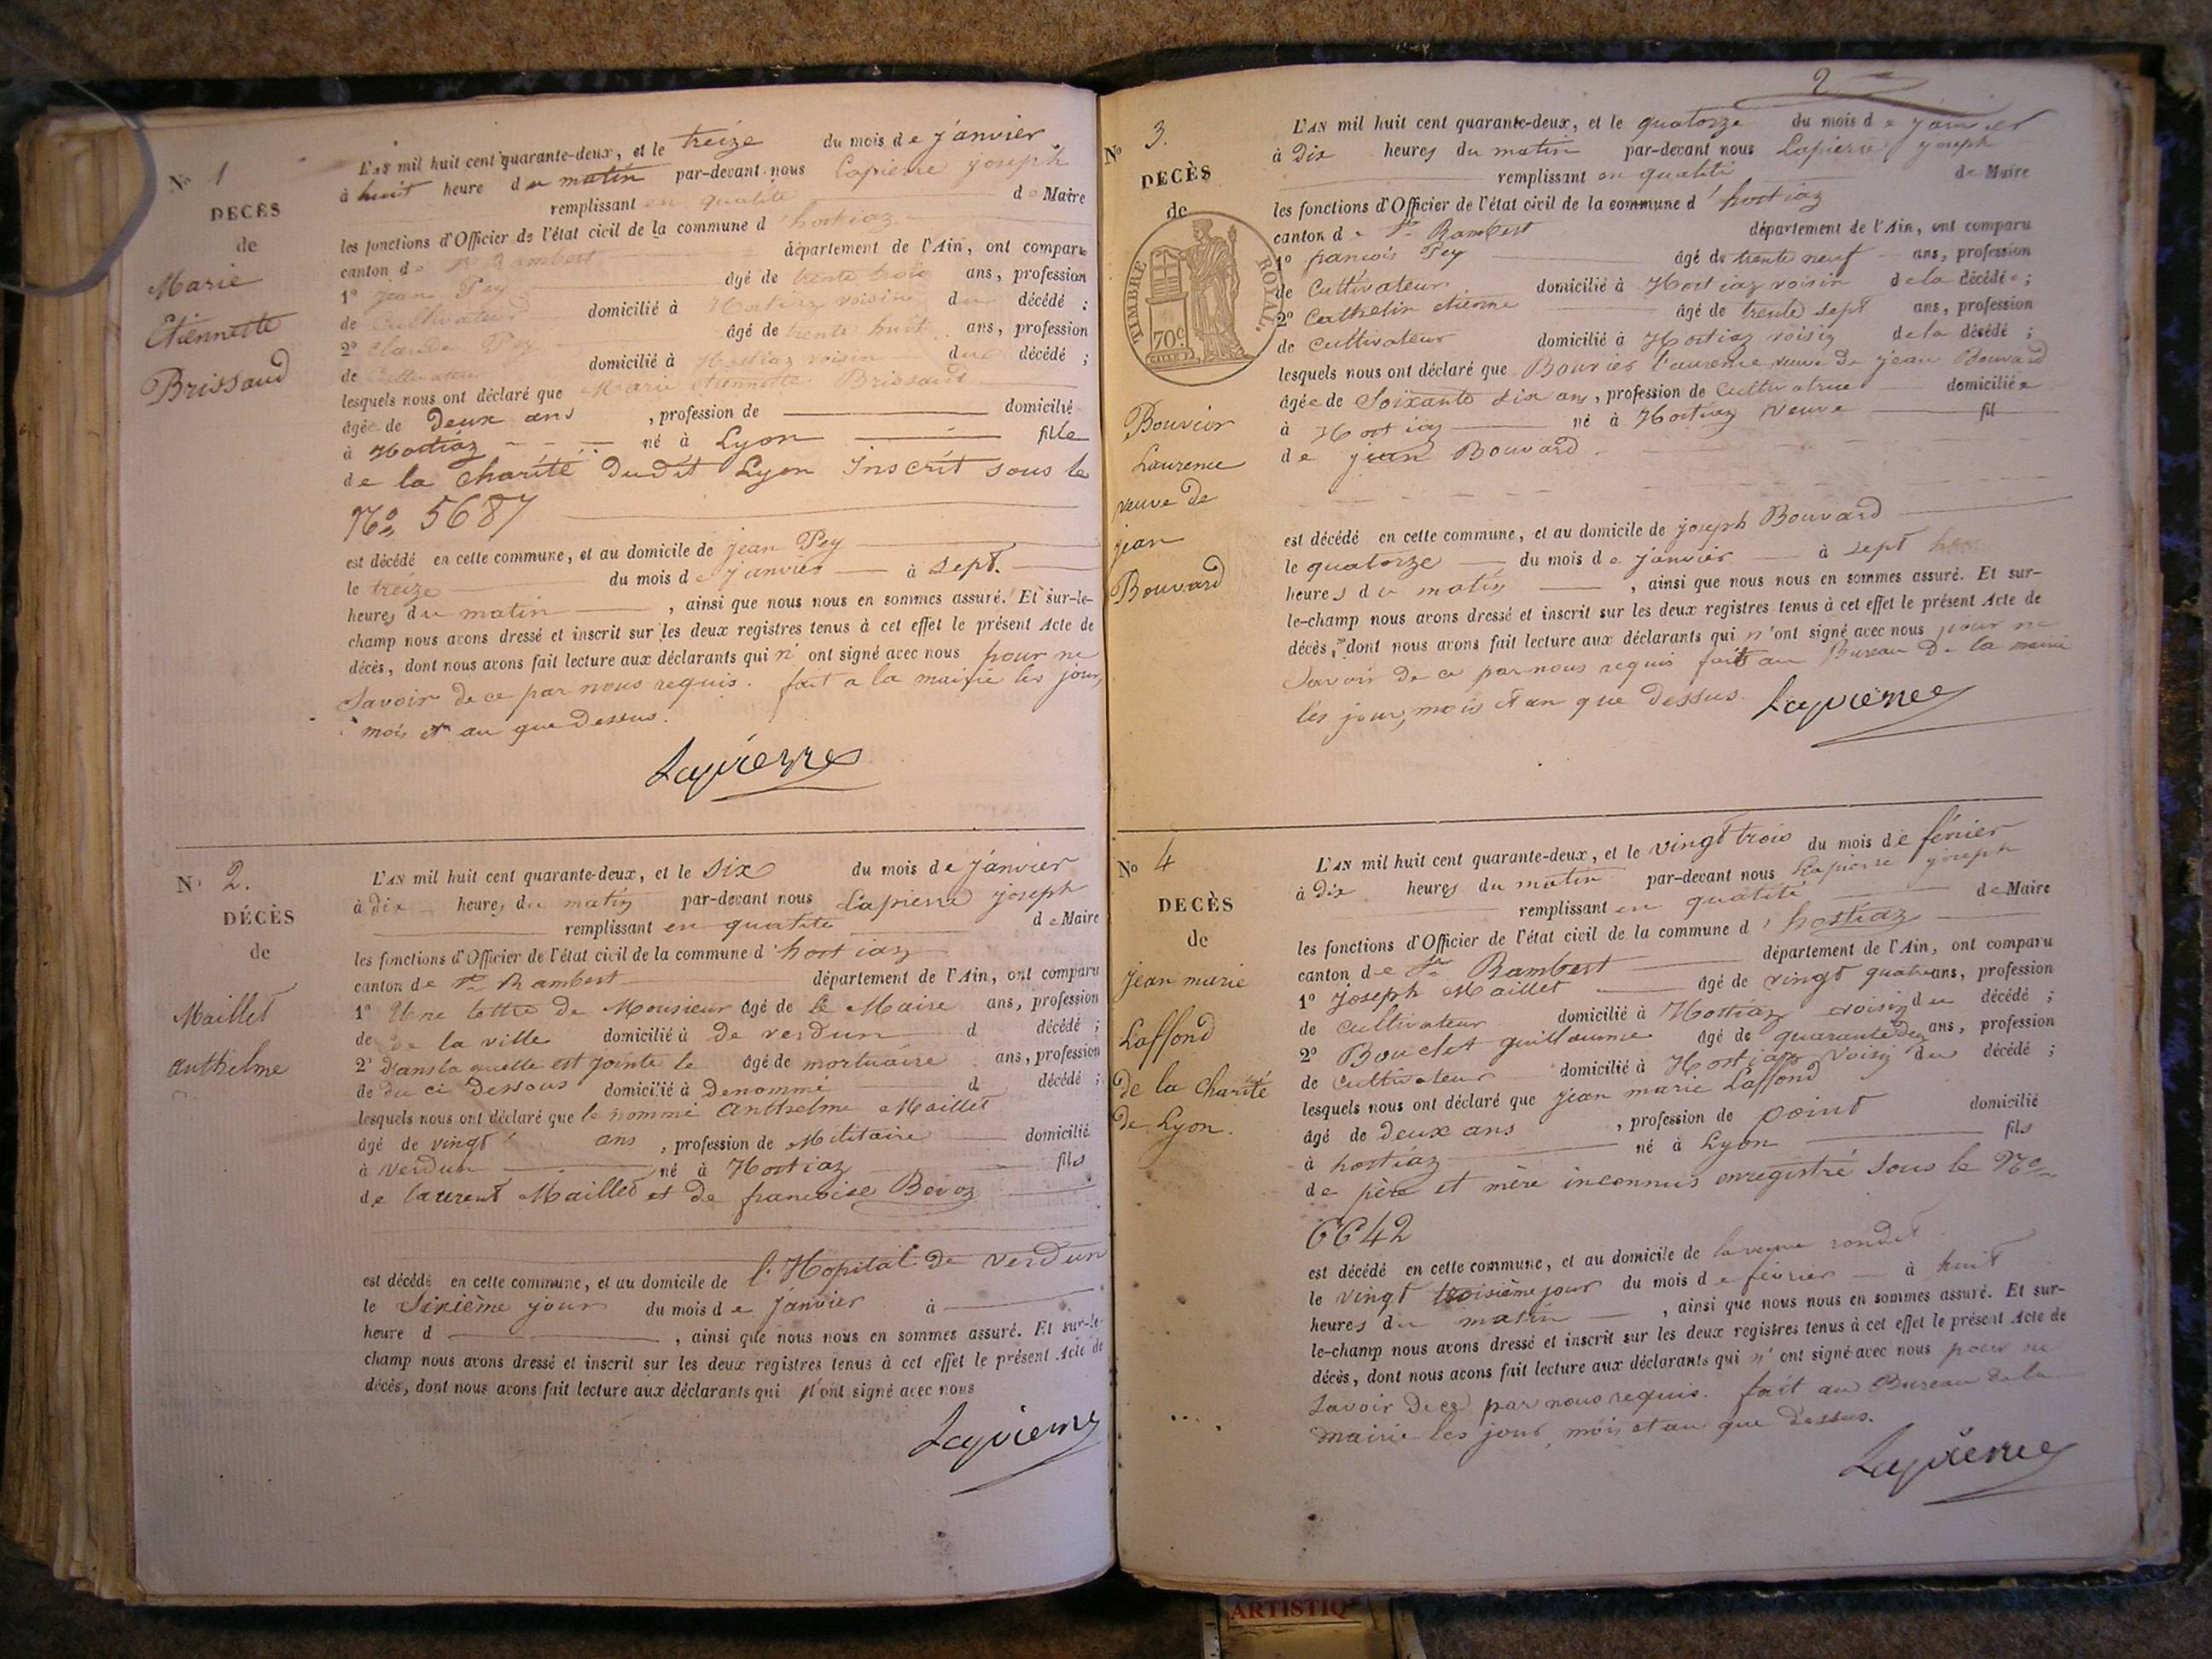 Nº 1
DECÈS
de
Marie
Etiennette
Brissaud
L'AN mil huit cent quarante-deux, et le treize du mois de janvier
à huit heure du matin par-devant nous Lapierre joseph
remplissant en qualité de Maire
les fonctions d'Officier de l'état civil de la commune d'hostiaz
canton de St Rambert département de l'Ain, ont comparu
1º jean Pey âgé de trente trois ans, profession
de Cultivateur domicilié à Hostiaz voisin du décédé ;
2º Claude Pey âgé de trente huit ans, profession
de Cultivateur domicilié à Hostiaz voisin du décédé ;
lesquels nous ont déclaré que Marie Etiennette Brissaud
âgée de Deux ans , profession de domicilié
à Hostiaz né à Lyon fille
de la Charité Dudit Lyon Inscrit sous le
No 5687
est décédé en cette commune, et au domicile de jean Pey
le treize du mois de janvier à sept.
heures du matin , ainsi que nous nous en sommes assuré. Et sur-le-
champ nous avons dressé et inscrit sur les deux registres tenus à cet effet le présent Acte de
décès, dont nous avons fait lecture aux déclarants qui n'ont signé avec nous pour ne
Savoir de ce par nous requis. fait a la mairie les jour,
mois et an que Dessus.
Lapierre
Nº 2.
DÉCÈS
de
Maillet
anthelme
L'AN mil huit cent quarante-deux, et le Dix du mois de janvier
à dix heures du matin par-devant nous Lapierre joseph
remplissant en qualité de Maire
les fonctions d'Officier de l'état civil de la commune d'hostiaz
canton de St Rambert département de l'Ain, ont comparu
1º Une lettre de Monsieur âgé de Le Maire ans, profession
de de la ville domicilié à de verdun d décédé ;
2º Dans la quelle est jointe le âgé de mortuaire ans, profession
de du ci Dessous domicilié à Denommé d décédé ;
lesquels nous ont déclaré que le nommé Anthelme Maillet
âgé de vingt ans , profession de Militaire domicilié
à Verdun né à Hostiaz fils
de laurent Maillet et de francoise Bevoz
est décédé en cette commune, et au domicile de l'Hopital de verdun
le Sixième jour du mois de janvier à
heure d , ainsi que nous nous en sommes assuré. Et sur-le-
champ nous avons dressé et inscrit sur les deux registres tenus à cet effet le présent Acte de
décès, dont nous avons fait lecture aux déclarants qui n'ont signé avec nous
Lapierre
2
Nº 3.
DÉCÈS
de
TIMBRE ROYAL.
70c
Bouvier
Laurence
veuve de
jean
Bouvard
L'AN mil huit cent quarante-deux, et le quatorze du mois de janvier
à Dix heures du matin par-devant nous Lapierre joseph
remplissant en qualité de Maire
les fonctions d'Officier de l'état civil de la commune d'hostiaz
canton de St Rambert département de l'Ain, ont comparu
1º francois Pey âgé de trente neuf ans, profession
de Cultivateur domicilié à Hostiaz voisin de la décédée ;
2º Cathelin etienne âgé de trente sept ans, profession
de Cultivateur domicilié à Hostiaz voisin de la décédé ;
lesquels nous ont déclaré que Bouvier Laurence veuve de jean Bouvard
âgée de Soixante dix ans, profession de Cultivatrice domiciliée
à Hostiaz né à Hostiaz veuve fil
de jean Bouvard.
est décédé en cette commune, et au domicile de joseph Bouvard
le quatorze du mois de janvier à sept
heures du matin , ainsi que nous nous en sommes assuré. Et sur-
le-champ nous avons dressé et inscrit sur les deux registres tenus à cet effet le présent Acte de
décès, dont nous avons fait lecture aux déclarants qui n'ont signé avec nous pour ne
Savoir de ce par nous requis fait au Bureau de la mairie
les jour, mois et an que dessus. Lapierre
Nº 4
DECÈS
de
jean marie
Laffond
de la charité
de Lyon.
L'AN mil huit cent quarante-deux, et le vingt trois du mois de février
à Dix heures du matin par-devant nous Lapierre joseph
remplissant en qualité de Maire
les fonctions d'Officier de l'état civil de la commune d'hostiaz
canton de St Rambert département de l'Ain, ont comparu
1º Joseph Maillet âgé de vingt quatre ans, profession
de Cultivateur domicilié à Hostiaz voisin du décédé ;
2º Bouclet guillaume âgé de quarante deux ans, profession
de Cultivateur domicilié à Hostiaz voisin du décédé ;
lesquels nous ont déclaré que jean marie Laffond
âgé de Deux ans , profession de point domicilié
à hostiaz né à Lyon fils
de père et mère inconnus enregistré sous le No
6642
est décédé en cette commune, et au domicile de la veuve rondet
le vingt troisième jour du mois de février à huit
heures du matin , ainsi que nous nous en sommes assuré. Et sur-
le-champ nous avons dressé et inscrit sur les deux registres tenus à cet effet le présent Acte de
décès, dont nous avons fait lecture aux déclarants qui n'ont signé avec nous pour ne
Savoir de ce par nous requis. fait au Bureau de la
mairie les jour, mois et an que dessus.
Lapierre
ARTISTIQ